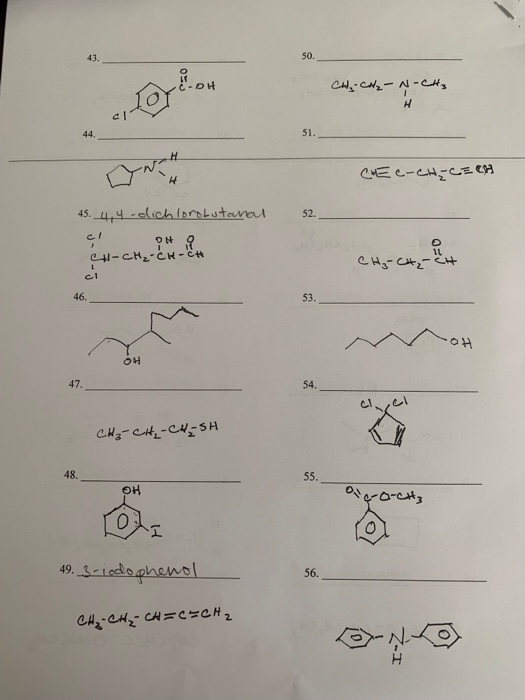 43.
O
C-OH
Cl
44.
N
H
H
45. 4,4-dichlorobutanal
Cl
OH O
CH-CH2-CH-CH
Cl
46.
OH
47.
CH3-CH2-CH2-SH
48.
OH
I
49. 3-iodophenol
CH3-CH2-CH=C=CH2
50.
CH3-CH2-N-CH3
H
51.
CH≡C-CH2-C≡CH
52.
O
CH3-CH2-CH
53.
OH
54.
Cl Cl
55.
O C-O-CH3
56.
N
H